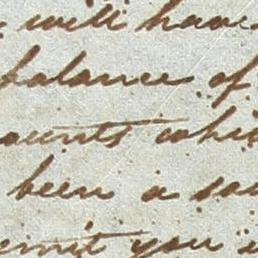 will have
balance of
ounts whic
been a
emit you i